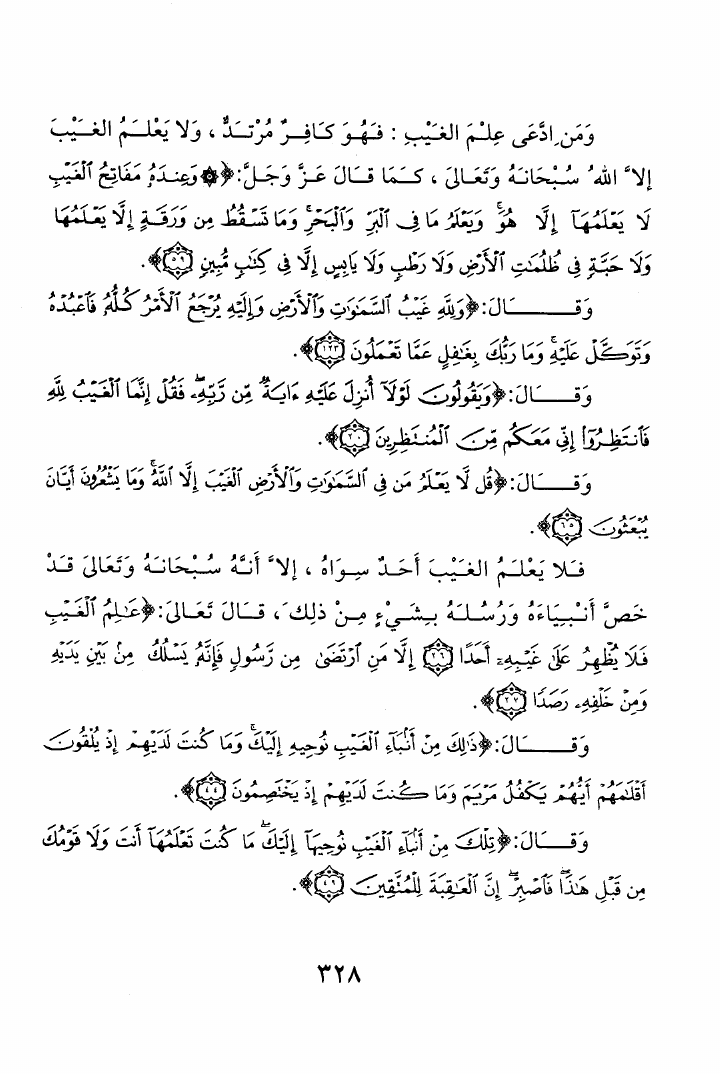 وَمَن ادَّعَى عِلْمَ الغَيْبِ : فَهُوَ كَافِرٌ مُرْتَدٌّ ، وَلا يَعْلَمُ الغَيْبَ
إلاَّ اللهُ سُبْحَانَهُ وَتَعَالَى ، كَمَا قَالَ عَزَّ وَجَلَّ: ﴿۞ وَعِندَهُۥ مَفَاتِحُ ٱلْغَيْبِ
لَا يَعْلَمُهَآ إِلَّا هُوَۚ وَيَعْلَمُ مَا فِى ٱلْبَرِّ وَٱلْبَحْرِۚ وَمَا تَسْقُطُ مِن وَرَقَةٍ إِلَّا يَعْلَمُهَا
وَلَا حَبَّةٍ فِى ظُلُمَٰتِ ٱلْأَرْضِ وَلَا رَطْبٍ وَلَا يَابِسٍ إِلَّا فِى كِتَٰبٍ مُّبِينٍ ۝٥٩﴾.
وَقَـــالَ: ﴿وَلِلَّهِ غَيْبُ ٱلسَّمَٰوَٰتِ وَٱلْأَرْضِ وَإِلَيْهِ يُرْجَعُ ٱلْأَمْرُ كُلُّهُۥ فَٱعْبُدْهُ
وَتَوَكَّلْ عَلَيْهِۚ وَمَا رَبُّكَ بِغَٰفِلٍ عَمَّا تَعْمَلُونَ ۝١٢٣﴾.
وَقَـــالَ: ﴿وَيَقُولُونَ لَوْلَآ أُنزِلَ عَلَيْهِ ءَايَةٌ مِّن رَّبِّهِۦۖ فَقُلْ إِنَّمَا ٱلْغَيْبُ لِلَّهِ
فَٱنتَظِرُوٓا۟ إِنِّى مَعَكُم مِّنَ ٱلْمُنتَظِرِينَ ۝٢٠﴾.
وَقَـــالَ: ﴿قُل لَّا يَعْلَمُ مَن فِى ٱلسَّمَٰوَٰتِ وَٱلْأَرْضِ ٱلْغَيْبَ إِلَّا ٱللَّهُۚ وَمَا يَشْعُرُونَ أَيَّانَ
يُبْعَثُونَ ۝٦٥﴾.
فَلا يَعْلَمُ الغَيْبَ أَحَدٌ سِوَاهُ ، إلاَّ أَنَّهُ سُبْحَانَهُ وَتَعَالَى قَدْ
خَصَّ أَنْبِيَاءَهُ وَرُسُلَهُ بِشَيْءٍ مِنْ ذلِكَ ، قَالَ تَعَالَى: ﴿عَٰلِمُ ٱلْغَيْبِ
فَلَا يُظْهِرُ عَلَىٰ غَيْبِهِۦٓ أَحَدًا ۝٢٦ إِلَّا مَنِ ٱرْتَضَىٰ مِن رَّسُولٍ فَإِنَّهُۥ يَسْلُكُ مِنۢ بَيْنِ يَدَيْهِ
وَمِنْ خَلْفِهِۦ رَصَدًا ۝٢٧﴾.
وَقَـــالَ: ﴿ذَٰلِكَ مِنْ أَنۢبَآءِ ٱلْغَيْبِ نُوحِيهِ إِلَيْكَۚ وَمَا كُنتَ لَدَيْهِمْ إِذْ يُلْقُونَ
أَقْلَٰمَهُمْ أَيُّهُمْ يَكْفُلُ مَرْيَمَ وَمَا كُنتَ لَدَيْهِمْ إِذْ يَخْتَصِمُونَ ۝٤٤﴾.
وَقَـــالَ: ﴿تِلْكَ مِنْ أَنۢبَآءِ ٱلْغَيْبِ نُوحِيهَآ إِلَيْكَۖ مَا كُنتَ تَعْلَمُهَآ أَنتَ وَلَا قَوْمُكَ
مِن قَبْلِ هَٰذَاۖ فَٱصْبِرْۖ إِنَّ ٱلْعَٰقِبَةَ لِلْمُتَّقِينَ ۝٤٩﴾.
٣٢٨